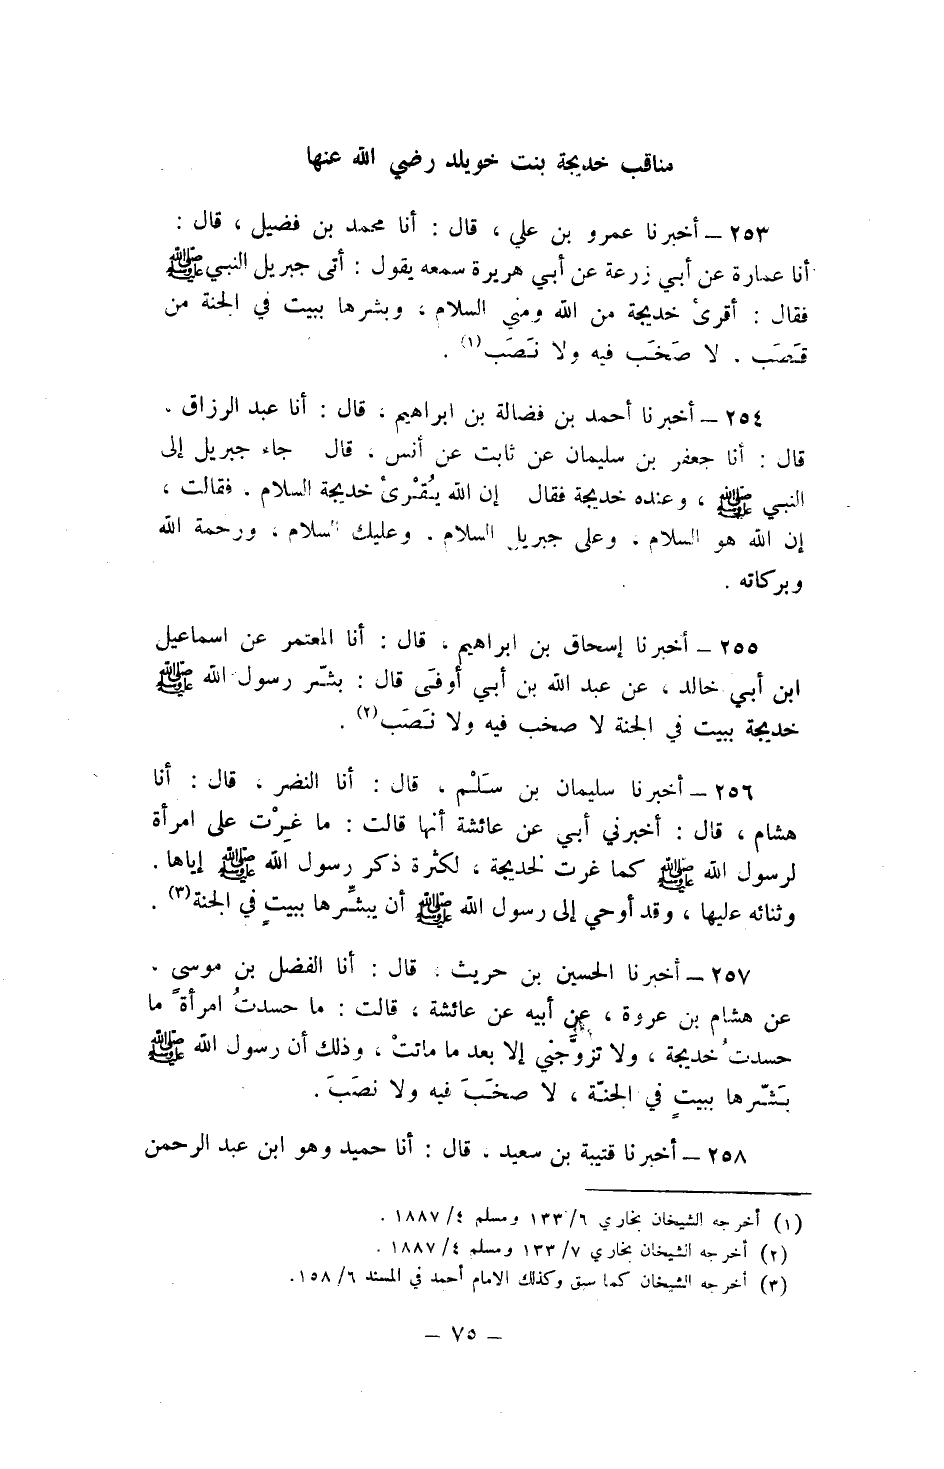 مناقب خديجة بنت خويلد رضي الله عنها
٢٥٣ ــ أخبرنا عمرو بن علي ، قال : أنا محمد بن فضيل ، قال :
أنا عمارة عن أبي زرعة عن أبي هريرة سمعه يقول : أتى جبريل النبي ﷺ
فقال : أقرىْ خديجة من الله ومني السلام ، وبشرها ببيت في الجنة من
قَصَب . لا صَخَب فيه ولا نَصَب(١) .
٢٥٤ ــ أخبرنا أحمد بن فضالة بن ابراهيم ، قال : أنا عبد الرزاق .
قال : أنا جعفر بن سليمان عن ثابت عن أنس ، قال جاء جبريل إلى
النبي ﷺ ، وعنده خديجة فقال إن الله يُقْرىْ خديجة السلام . فقالت ،
إن الله هو السلام ، وعلى جبريل السلام . وعليك السلام ، ورحمة الله
وبركاته .
٢٥٥ ــ أخبرنا إسحاق بن ابراهيم ، قال : أنا المعتمر عن اسماعيل
ابن أبي خالد ، عن عبد الله بن أبي أوفَى قال : بشّر رسول الله ﷺ
خديجة ببيت في الجنة لا صخب فيه ولا نَصَب(٢) .
٢٥٦ ــ أخبرنا سليمان بن سَلْم ، قال : أنا النضر ، قال : أنا
هشام ، قال : أخبرني أبي عن عائشة أنها قالت : ما غِرْت على امرأة
لرسول الله ﷺ كما غرت لخديجة ، لكثرة ذكر رسول الله ﷺ إياها .
وثنائه عليها ، وقد أوحي إلى رسول الله ﷺ أن يبشِّرها ببيتٍ في الجنة(٣) .
٢٥٧ ــ أخبرنا الحسين بن حريث ، قال : أنا الفضل بن موسى .
عن هشام بن عروة ، عن أبيه عن عائشة ، قالت : ما حسدتُ امرأةً ما
حسدتُ خديجة ، ولا تزوَّجني إلا بعد ما ماتتْ ، وذلك أن رسول الله ﷺ
بَشّرها ببيتٍ في الجنّة ، لا صخَبَ فيه ولا نصَبَ .
٢٥٨ ــ أخبرنا قتيبة بن سعيد ، قال : أنا حميد وهو ابن عبد الرحمن
(١) أخرجه الشيخان بخاري ٦/ ١٣٣ ومسلم ٤/ ١٨٨٧ .
(٢) أخرجه الشيخان بخاري ٧/ ١٣٣ ومسلم ٤/ ١٨٨٧ .
(٣) أخرجه الشيخان كما سبق وكذلك الامام أحمد في المسند ٦/ ١٥٨.
ــ ٧٥ ــ